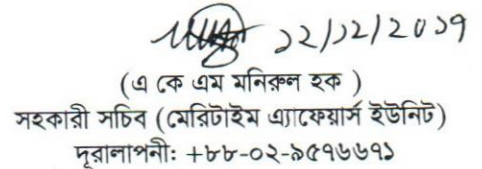 ১২/১২/২০১৭
(এ কে এম মনিরুল হক )
সহকারী সচিব (মেরিটাইম এ্যাফেয়ার্স ইউনিট)
দূরালাপনীঃ +৮৮-০২-৯৫৭৬৬৭১